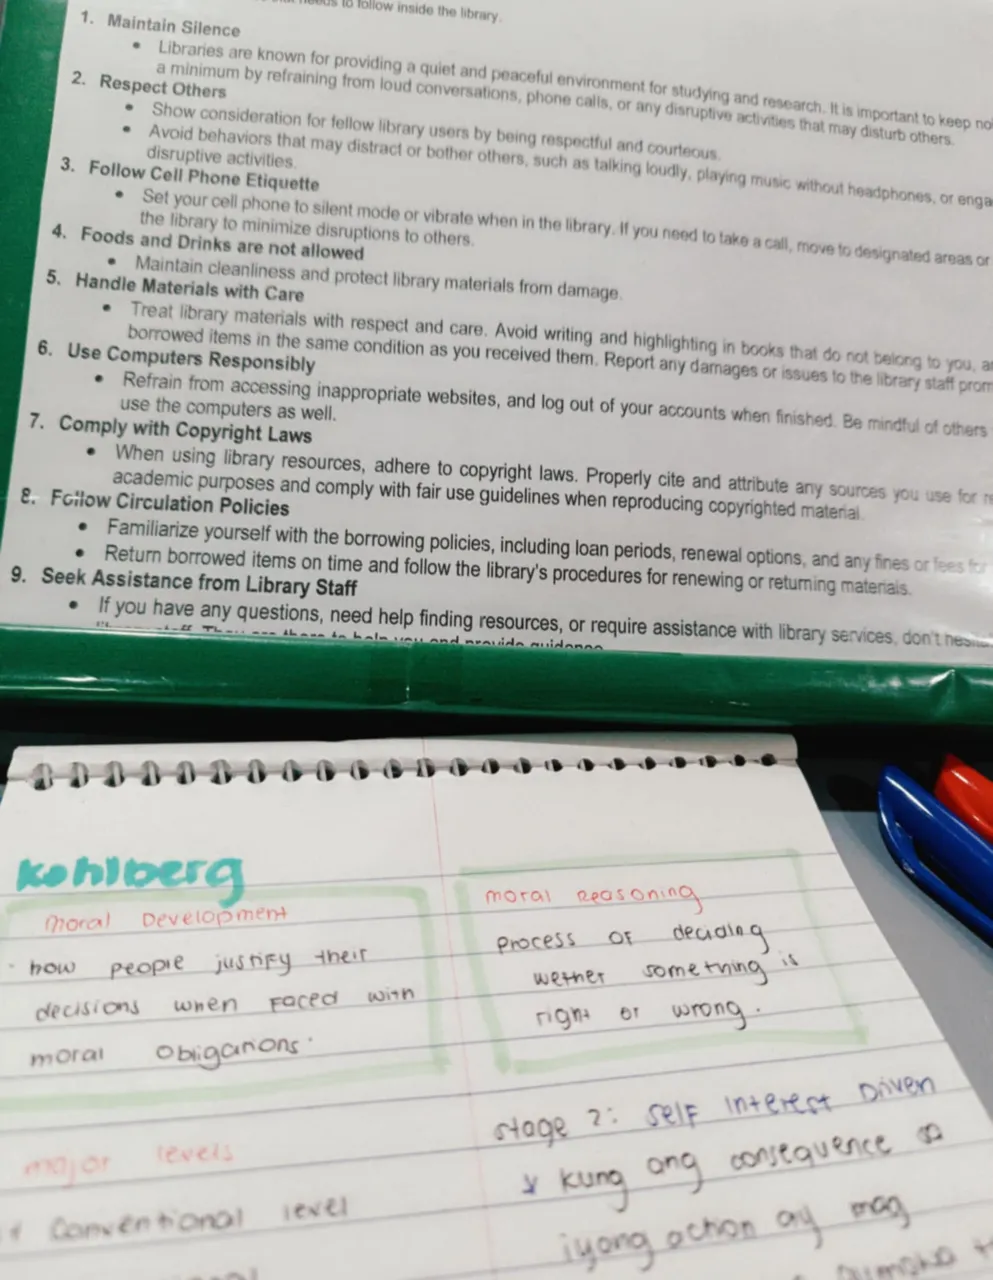 to follow inside the library.
1. Maintain Silence
• Libraries are known for providing a quiet and peaceful environment for studying and research. It is important to keep
a minimum by refraining from loud conversations, phone calls, or any disruptive activities that may disturb others.
2. Respect Others
• Show consideration for fellow library users by being respectful and courteous.
• Avoid behaviors that may distract or bother others, such as talking loudly, playing music without headphones, or
disruptive activities.
3. Follow Cell Phone Etiquette
• Set your cell phone to silent mode or vibrate when in the library. If you need to take a call, move to designated areas or
the library to minimize disruptions to others.
4. Foods and Drinks are not allowed
• Maintain cleanliness and protect library materials from damage.
5. Handle Materials with Care
• Treat library materials with respect and care. Avoid writing and highlighting in books that do not belong to you,
borrowed items in the same condition as you received them. Report any damages or issues to the library staff
6. Use Computers Responsibly
• Refrain from accessing inappropriate websites, and log out of your accounts when finished. Be mindful of others
use the computers as well.
7. Comply with Copyright Laws
• When using library resources, adhere to copyright laws. Properly cite and attribute any sources you use for
academic purposes and comply with fair use guidelines when reproducing copyrighted material.
8. Follow Circulation Policies
• Familiarize yourself with the borrowing policies, including loan periods, renewal options, and any fines or fees for
• Return borrowed items on time and follow the library's procedures for renewing or returning materials.
9. Seek Assistance from Library Staff
• If you have any questions, need help finding resources, or require assistance with library services, don't
They are there to help you and provide guidance
Kohlberg
moral Development
· how people justify their
decisions when faced with
moral obligations.
moral Reasoning
process of deciding
wether something is
right or wrong.
major levels
conventional level
stage 2: self interest Driven
kung ang consequence sa
iyong action ay mag